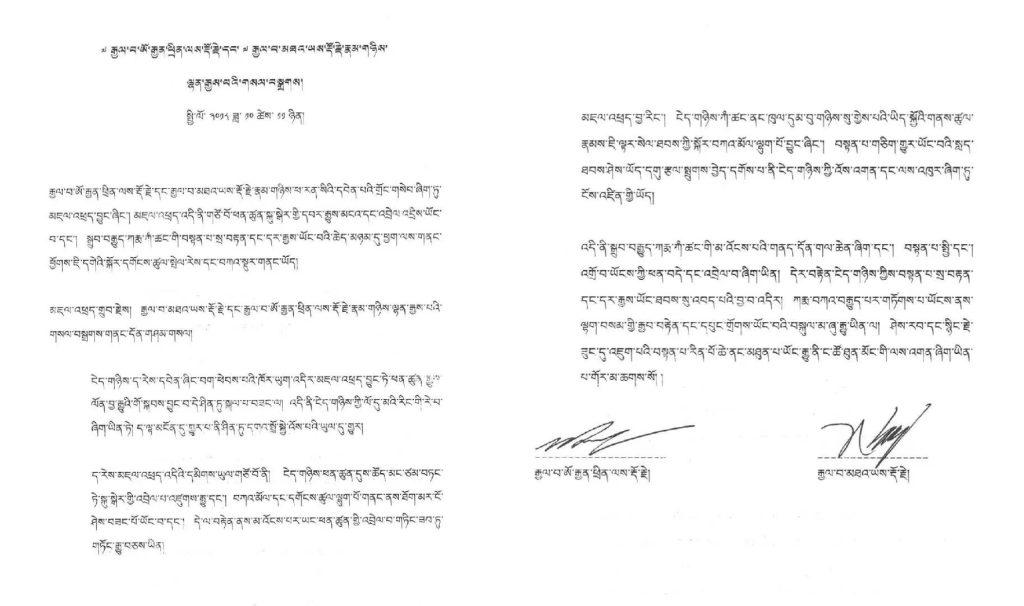 ༧ རྒྱལ་བ་ཨོ་རྒྱན་ཕྲིན་ལས་རྡོ་རྗེ་དང་ ༧ རྒྱལ་བ་མཐའ་ཡས་རྡོ་རྗེ་རྣམ་གཉིས་
ལྷན་རྒྱས་པའི་གསལ་བསྒྲགས།
སྤྱི་ལོ་ ༢༠༡༨ ཟླ་ ༡༠ ཚེས་ ༡༡ ཉིན།
རྒྱལ་བ་ཨོ་རྒྱན་ཕྲིན་ལས་རྡོ་རྗེ་དང་རྒྱལ་བ་མཐའ་ཡས་རྡོ་རྗེ་རྣམ་གཉིས་ཕ་རན་སིའི་དབེན་པའི་གྲོང་གསེབ་ཞིག་ཏུ་
མཇལ་འཕྲད་བྱུང་ཞིང་། མཇལ་འཕྲད་འདི་ནི་གཙོ་བོ་ཕན་ཚུན་སྐུ་སྒེར་གྱི་དབར་རྒྱུས་མངའ་དང་འབྲེལ་འདྲིས་ཡོང་
བ་དང་། སྒྲུབ་བརྒྱུད་ཀརྨ་ཀཾ་ཚང་གི་བསྟན་པ་སྲ་བརྟན་དང་དར་རྒྱས་ཡོང་བའི་ཆེད་མཉམ་དུ་ཕྱག་ལས་གནང་
ཕྱོགས་ཇི་དགེའི་སྐོར་དགོངས་ཚུལ་སྤེལ་རེས་དང་བཀའ་སྡུར་གནང་ཡོད།
མཇལ་འཕྲད་གྲུབ་རྗེས། རྒྱལ་བ་མཐའ་ཡས་རྡོ་རྗེ་དང་རྒྱལ་བ་ཨོ་རྒྱན་ཕྲིན་ལས་རྡོ་རྗེ་རྣམ་གཉིས་ལྷན་རྒྱས་པའི་
གསལ་བསྒྲགས་གནང་དོན་གཤམ་གསལ།
ངེད་གཉིས་ད་རེས་དབེན་ཞིང་བག་ཕེབས་པའི་ཁོར་ཡུག་འདིར་མཇལ་འཕྲད་བྱུང་ཏེ་ཕན་ཚུན་རྒྱུས་
ལོན་བྱ་རྒྱུའི་གོ་སྐབས་བྱུང་བ་དེ་ཤིན་ཏུ་སྐལ་པ་བཟང་ལ། འདི་ནི་ངེད་གཉིས་ཀྱི་ལོ་དུ་མའི་རིང་གི་རེ་བ་
ཞིག་ཡིན་ཏེ། ད་ལྟ་མངོན་དུ་གྱུར་པ་ནི་ཤིན་ཏུ་དགའ་སྤྲོ་སྐྱེ་འོས་པའི་ཡུལ་དུ་གྱུར།
ད་རེས་མཇལ་འཕྲད་འདིའི་དམིགས་ཡུལ་གཙོ་བོ་ནི། ངེད་གཉིས་ཕན་ཚུན་དུས་ཚོད་མང་ཙམ་བཏང་
ཏེ་སྐུ་སྒེར་གྱི་འབྲེལ་བ་འཛུགས་རྒྱུ་དང་། བཀའ་མོལ་དང་དགོངས་ཚུལ་ལྷུག་པོ་གནང་ནས་ཐོག་མར་ངོ་
ཤེས་བཟང་པོ་ཡོང་བ་དང་། དེ་ལ་བརྟེན་ནས་མ་འོངས་པར་ཡང་ཕན་ཚུན་གྱི་འབྲེལ་བ་གཏིང་ཟབ་ཏུ་
གཏོང་རྒྱུ་བཅས་ཡིན།
མཇལ་འཕྲད་བྱ་རིང་། ངེད་གཉིས་ཀཾ་ཚང་ནང་ཁུལ་དུམ་བུ་གཉིས་སུ་གྱེས་པའི་ཡིད་སྐྱོའི་གནས་ཚུལ་
རྣམས་ཇི་ལྟར་སེལ་ཐབས་ཀྱི་སྐོར་བཀའ་མོལ་ལྷུག་པོ་བྱུང་ཞིང་། བསྟན་པ་གཅིག་གྱུར་ཡོང་བའི་སླད་
ཐབས་ཤེས་ཡོད་དགུ་རྩལ་སྤྲུགས་བྱེད་དགོས་པ་ནི་ངེད་གཉིས་ཀྱི་འོས་འགན་དང་ལས་འཁུར་ཞིག་ཏུ་
ངོས་འཛིན་གྱི་ཡོད།
འདི་ནི་སྒྲུབ་བརྒྱུད་ཀརྨ་ཀཾ་ཚང་གི་མ་འོངས་པའི་གནད་དོན་གལ་ཆེན་ཞིག་དང་། བསྟན་པ་སྤྱི་དང་།
འགྲོ་བ་ཡོངས་ཀྱི་ཕན་བདེ་དང་འབྲེལ་བ་ཞིག་ཡིན། དེར་བརྟེན་ངེད་གཉིས་ཀྱིས་བསྟན་པ་སྲ་བརྟན་
དང་དར་རྒྱས་ཡོང་ཐབས་སུ་འབད་པའི་བྱ་བ་འདིར། ཀརྨ་བཀའ་བརྒྱུད་པར་གཏོགས་པ་ཡོངས་ནས་
ལྷག་བསམ་གྱི་རྒྱབ་བརྟེན་དང་དཔུང་གྲོགས་ཡོང་བའི་བསྐུལ་མ་ཞུ་རྒྱུ་ཡིན་ལ། ཤེས་རབ་དང་སྙིང་རྗེ་
ཟུང་དུ་འཇུག་པའི་བསྟན་པ་རིན་པོ་ཆེ་ནང་མཐུན་པ་ཡོང་རྒྱུ་ནི་ང་ཚོ་ཐུན་མོང་གི་ལས་འགན་ཞིག་ཡིན་
པ་གོར་མ་ཆགས་སོ། །
རྒྱལ་བ་ཨོ་རྒྱན་ཕྲིན་ལས་རྡོ་རྗེ། རྒྱལ་བ་མཐའ་ཡས་རྡོ་རྗེ།